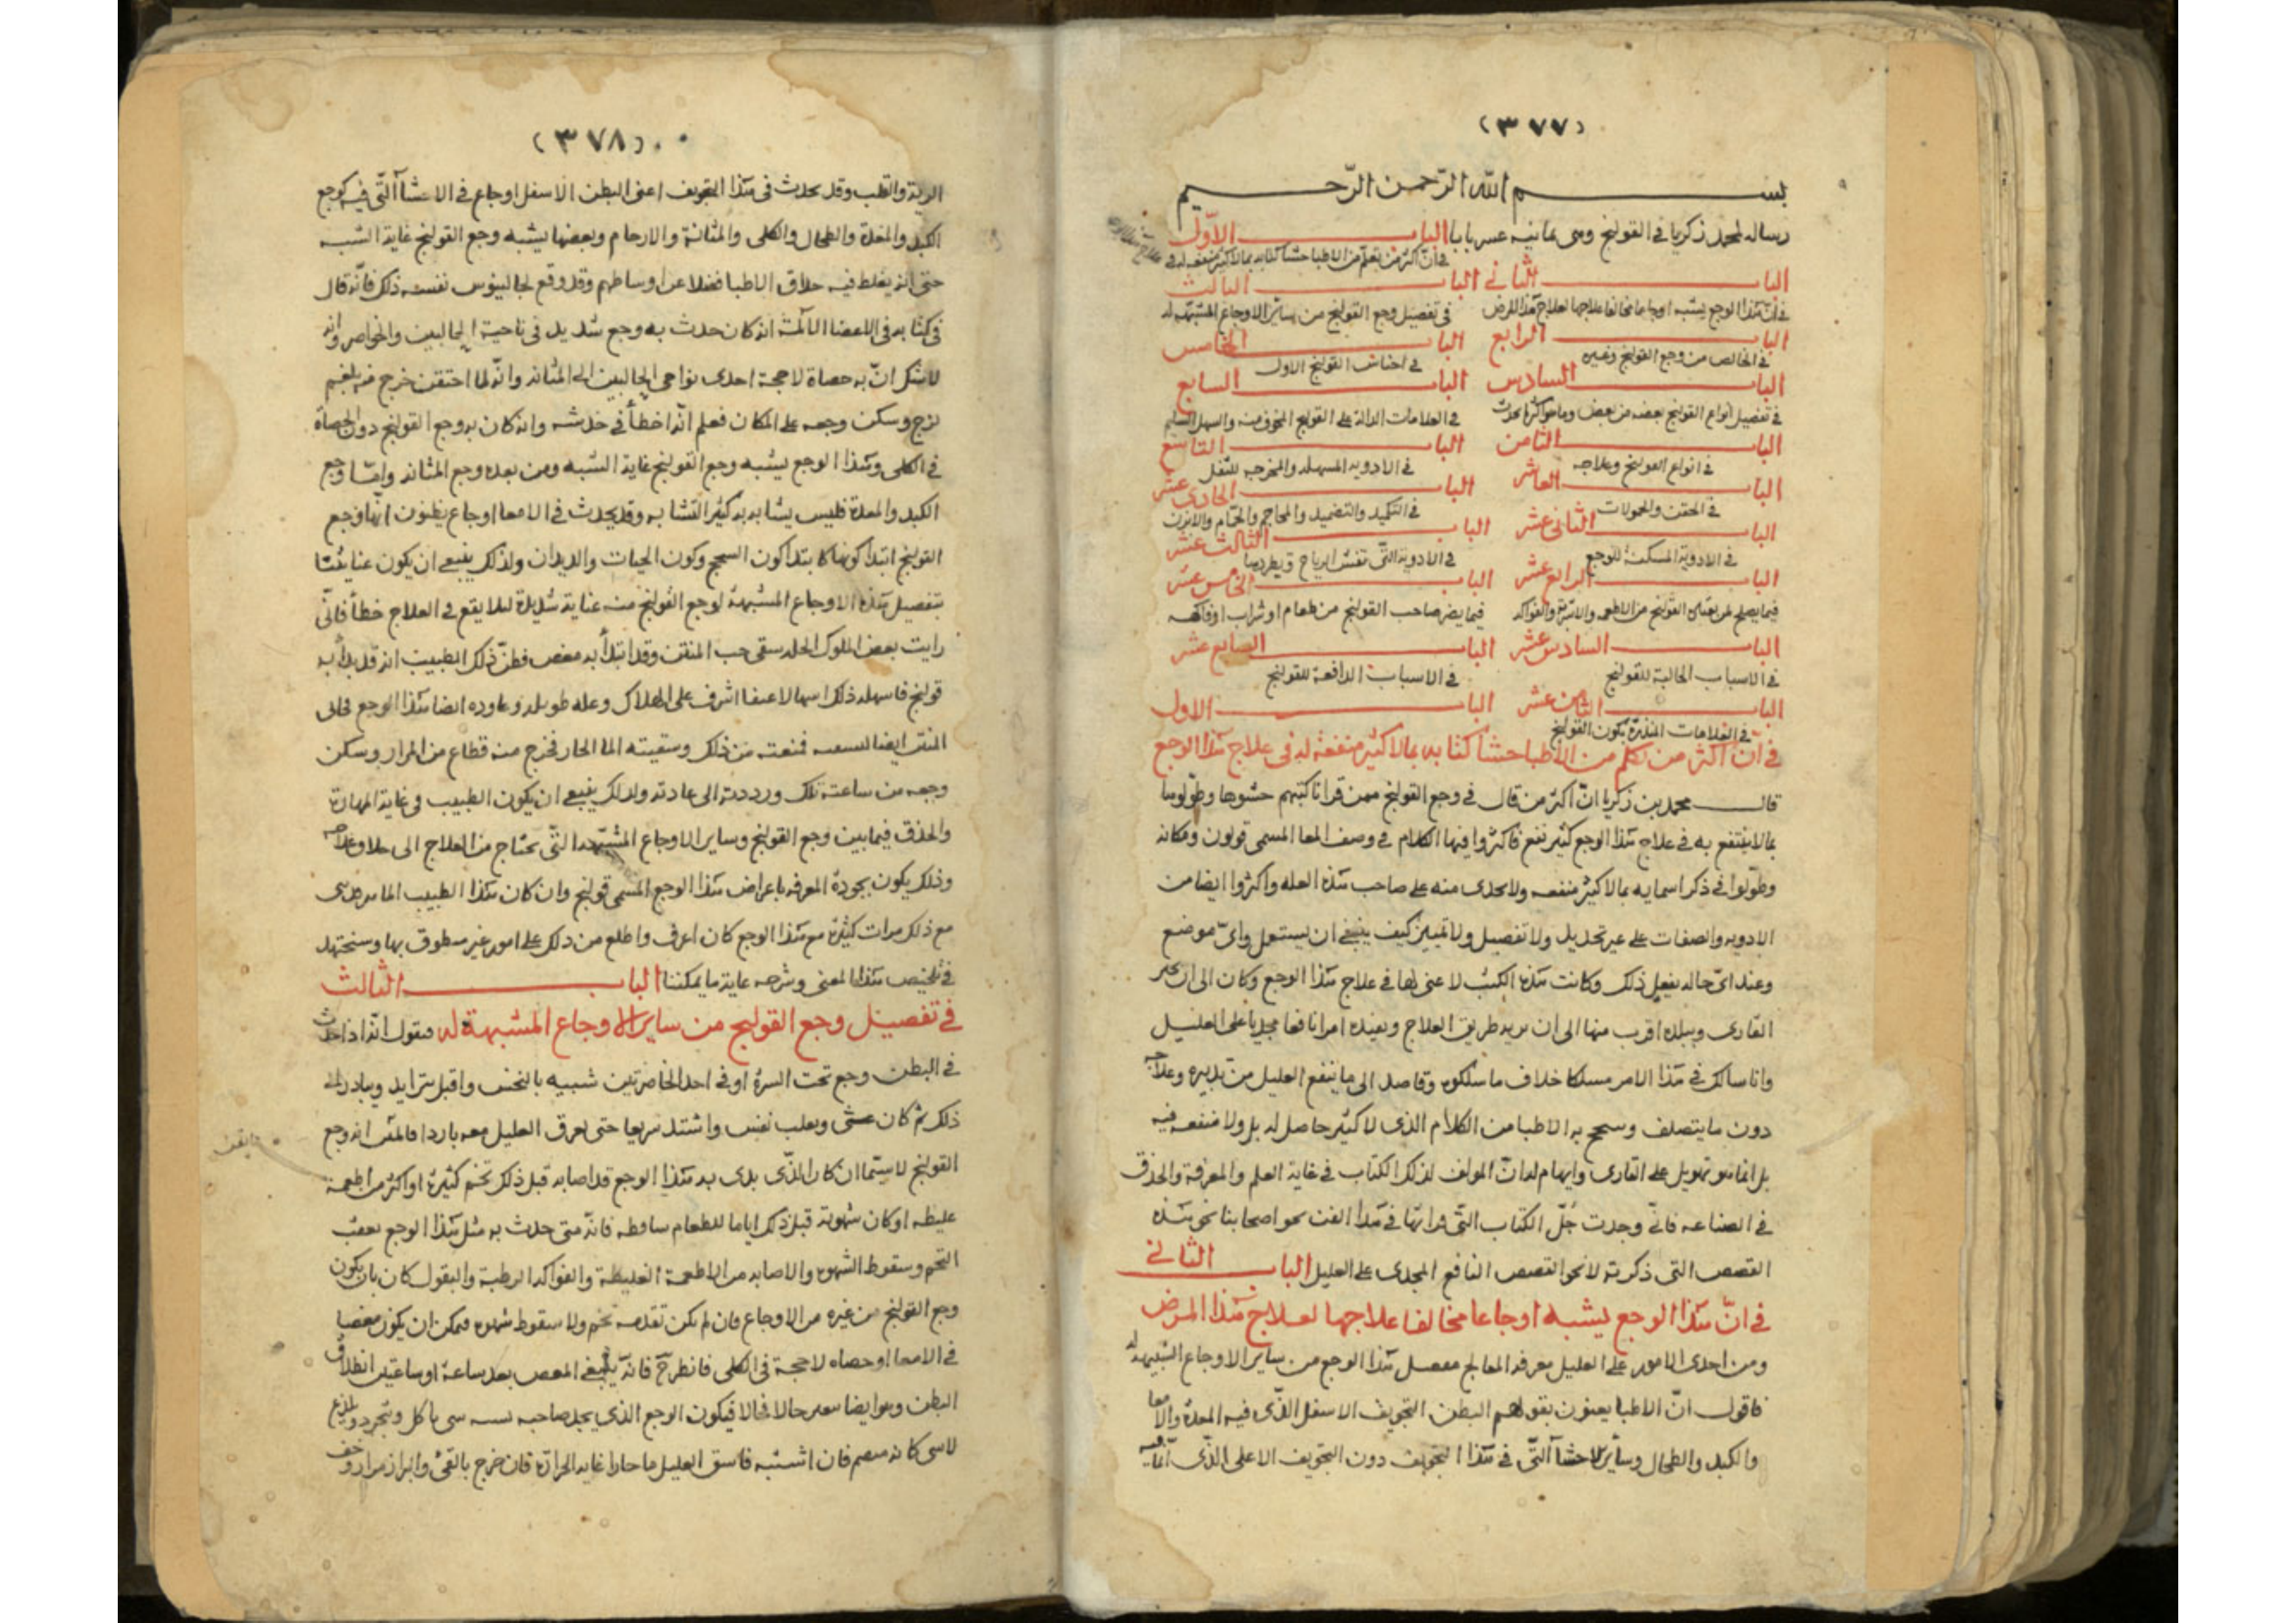 (٣٧٧)
بسم الله الرّحمن الرّحيم
رساله لمحمد زكريا في القولنج وهي ثمانيه عشر بابا الباب الاوّل
في انّ اكثر من تكلم من الاطبا حشا كتابه بمالا كثير منفعه له في علاج
الباب الثاني الباب الثالث
في ان هذا الوجع يشبه اوجاعا مخالفا علاجها لعلاج هذا المرض في تفصيل وجع القولنج من ساير الاوجاع المشبهه له
الباب الرابع الباب الخامس
في الخالص من وجع القولنج وغيره في اجناس القولنج الاول
الباب السادس الباب السابع
في تفصيل انواع القولنج بعضه من بعض وما هو اكثرها يحدث في العلامات الدالة على القولنج المخوف منه والسهل السليم
الباب الثامن الباب التاسع
في انواع القولنج وعلاجه في الادويه المسهله والمخرجه للثفل
الباب العاشر الباب الحادى عشر
في الحقن والحمولات في التكميد والتضميد والمحاجم والحمّام والابزن
الباب الثانى عشر الباب الثالث عشر
في الادوية المسكنة للوجع في الادوية التّى تفش الرياح ويطردها
الباب الرابع عشر الباب الخامس عشر
فيما يصلح لمن يعتاده القولنج من الاطعمه والاشربة والفواكه فيما يضر صاحب القولنج من طعام او شراب او فاكهه
الباب السادس عشر الباب السابع عشر
في الاسباب الجالبة للقولنج في الاسباب الدافعة للقولنج
الباب الثامن عشر الباب الاول
في العلامات المنذرة بكون القولنج
في ان اكثر من تكلم من الاطبا حشا كتابه بمالا كثير منفعة له فى علاج هذا الوجع
قال محمد بن زكريا انّ اكثر من قال في وجع القولنج ممن قرانا كتبهم حشوها وطوّلوها
بمالا ينتفع به في علاج هذا الوجع كثير نفع فاكثروا فيها الكلام في وصف المعا المسمى قولون ومكانه
وطوّلوا في ذكر اسمايه بمالا كثير منفعه ولا يجدى منه على صاحب هذه العله واكثروا ايضا من
الادويه والصفات على غير تحديد ولا تفصيل ولا تمييز كيف ينبغى ان يستعمل واىّ موضع
وعند اىّ حاله يفعل ذلك وكانت هذه الكتب لا غنى لها في علاج هذا الوجع وكان الى ان يحير
القارى ويبلده اقرب منها الى ان يريه طريق العلاج ويفيده امرا نافعا مجديا على العليل
وانا سالك في هذا الامر مسلكا خلاف ما سلكوه وقاصد الى ما ينفع العليل من تدبيره وعلاجه
دون ما يتصلف به الاطبا من الكلام الذى لا كثير حاصل له بل ولا منفعه فيه
بل انما هو تهويل على القارى وايهام له انّ المولف لذلك الكتاب في غاية العلم والمعرفة والحذق
في الصناعه فانّى وجدت جُلّ الكتاب التّى قراتها في هذا الفن نحو اصحابنا نحو هذه
القصص التى ذكرته لا نحو القصص النافع المجدى على العليل الباب الثانى
في انّ هذا الوجع يشبه اوجاعا مخالفا علاجها لعلاج هذا المرض
ومن احدى الامور على العليل معرفه المعالج بفصل هذا الوجع من ساير الاوجاع الشبيهه له
فاقول انّ الاطبا يعنون بقولهم البطن التجويف الاسفل الذّى فيه المعدة والامعا
والكبد والطحال وساير الاحشآ التّى في هذا التجويف دون التجويف الاعلى الذّى
(٣٧٨)
الرية والقلب وقد يحدث فى هذا التجويف اعنى البطن الاسفل اوجاع في الاحشآ التّى فيه كوجع
الكبد والمعدة والطحال والكلى والمثانة والارحام وبعضها يشبه وجع القولنج غاية الشبه
حتى انه يغلط فيه حذاق الاطبا فضلا عن اوساطهم وقد وقع لجالينوس نفسه ذلك فانّه قال
فى كتابه فى الاعضا الآلمة انه كان حدث به وجع شديد في ناحية الحالبين والخواصر وانه
لا يشك انّ به حصاة لاحجة احدى نواحى الحالبين الى المثانه وانّه لما احتقن خرج منه بلغم
لزج وسكن وجعه على المكان فعلم انّه اخطأ في حدسه وانه كان به وجع القولنج دون الحصاة
في الكلى وهذا الوجع يشبه وجع القولنج غاية الشبه ومن بعده وجع المثانه وامّا وجع
الكبد والمعدة فليس يشابه به كثير التشابه وقد يحدث في الامعا اوجاع يظنون انّها وجع
القولنج ابتدا كونها كابتدا كون السحج وكون الحيات والديدان ولذلك ينبغى ان يكون عنايتنا
بتفصيل هذه الاوجاع المشبهة لوجع القولنج منه عناية شديدة ليلا يقع في العلاج خطأ فانّى
رايت بعض الملوك الجله سقى حب المنتن وقد ابتدأ به مغص فظنّ ذلك الطبيب انه قد بدأ به
قولنج فاسهله ذلك اسهالا عنيفا اشرف على الهلاك وعله طويله وعاوده ايضا هذا الوجع فجاى
المنتن ايضا ليسقيه فمنعته من ذلك وسقيته المآ الحار فخرج منه قطاع من المرار وسكن
وجعه من ساعته تلك ورددته الى عادته ولذلك ينبغى ان يكون الطبيب في غاية المهارة
والحذق فيما بين وجع القولنج وساير الاوجاع المشبّهه التّى يحتاج من العلاج الى خلاف علاجه
وذلك يكون بجودة المعرفه باعراض هذا الوجع المسمى قولنج وان كان هذا الطبيب الماهر
مع ذلك مرات كثيرة مع هذا الوجع كان اعرف واطلع من ذلك على امور غير منطوق بها وسنجتهد
في تلخيص هذا المعنى وشرحه غاية ما يمكننا الباب الثالث
في تفصيل وجع القولنج من ساير الاوجاع المشبهة له فنقول انّه اذا حدث
في البطن وجع تحت السرة او في احد الخاصرتين شبيه بالنخس واقبل يتزايد ويبادر الى
ذلك ثم كان غشى وتقلب نفس واشتد سريعا حتى يعرق العليل معه باردا فالمتن انه وجع
القولنج لا سيّما ان كان الذّى بدى به هذا الوجع قد اصابه قبل ذلك تخم كثيرة او اكثر من اطعمة
غليظه او كان شهوته قبل ذلك اياما للطعام ساقطه فانّه متى حدث به مثل هذا الوجع بعقب
التخم وسقوط الشهوه والاصابه من الاطعمة الغليظة والفواكه الرطبة والبقول كان بان يكون
وجع القولنج من غيره من الاوجاع فان لم يكن تقدمه تخم ولا سقوط شهوه فيمكن ان يكون مغصا
في الامعا او حصاه لاحجة فى الكلى فانظر فانّه يتبع المغص بعد ساعة او ساعتين انطلاق
البطن وهو ايضا يتغير حالا فحالا فيكون الوجع الذى يجد صاحبه شبيه شى ياكل ويجرد ويلذع
فان اشتبه فاسق العليل ما حارا غاية الحرارة فان خرج بالقى والبراز مرار وخف